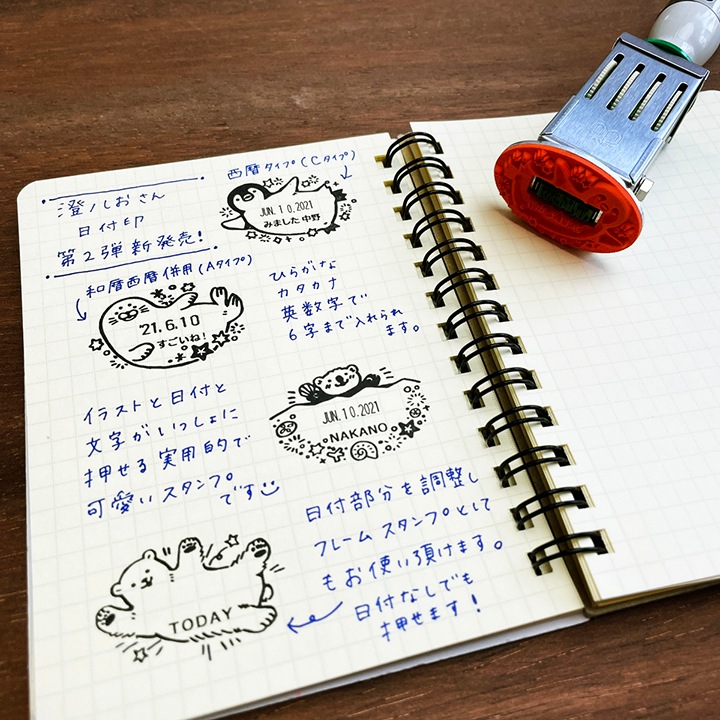 西暦タイプ(Cタイプ)
澄ノしおさん
日付印
第2弾新発売!
JUN.10.2021
みました 中野
和暦西暦併用(Aタイプ)
21.6.10
すごいね!
ひらがな
カタカナ
英数字で
6字まで入れられ
ます。
JUN.10.2021
NAKANO
イラストと日付と
文字がいっしょに
押せる実用的で
可愛いスタンプ
です
日付部分を調整し
フレームスタンプとして
もお使い頂けます。
日付なしでも
押せます!
TODAY